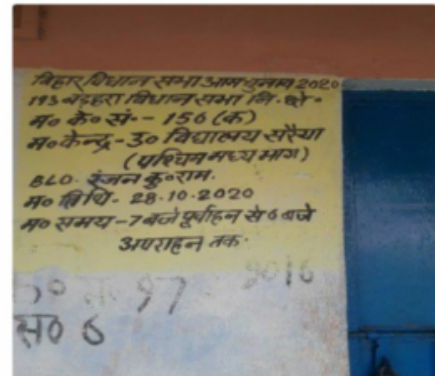 बिहार विधान सभा आम चुनाव 2020
193 बड़हरा विधान सभा नि॰ क्षे॰
म॰ के॰ सं॰ - 156 (क)
म॰ केन्द्र - उ॰ विद्यालय सरैया
(पश्चिम मध्य भाग)
BLO. रंजन कु॰ राम.
म॰ तिथि - 28.10.2020
म॰ समय - 7 बजे पूर्वाहन से 6 बजे
अपराहन तक.
97
स॰ 6